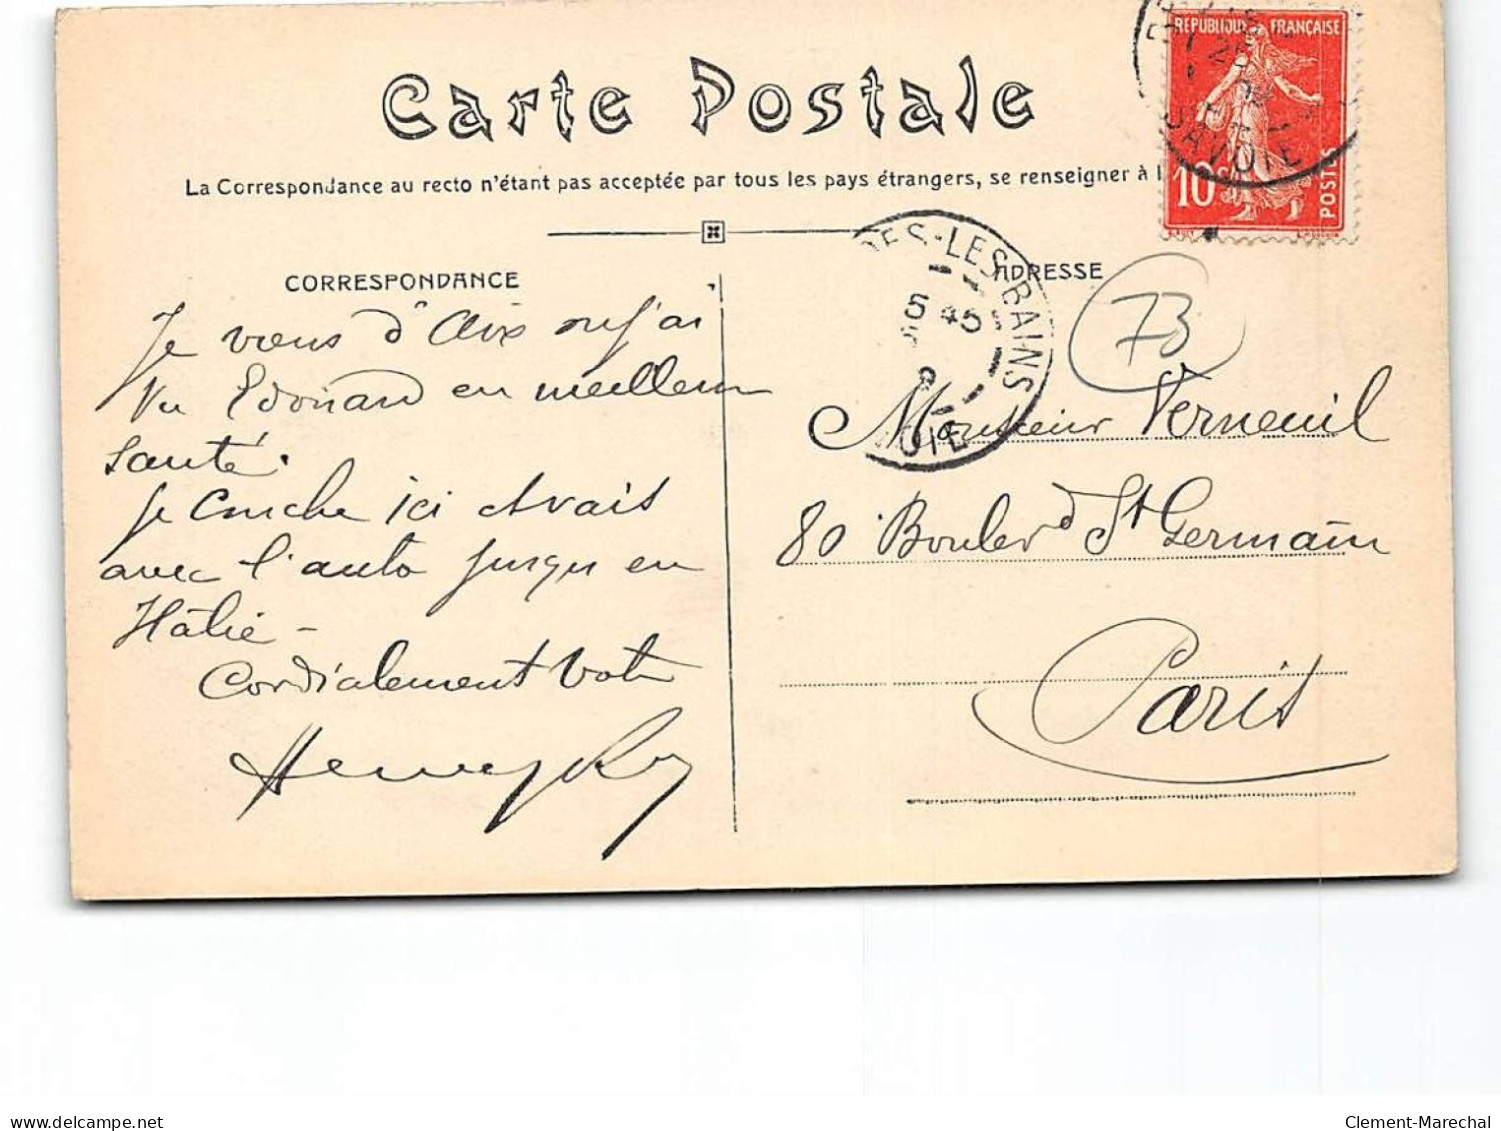 Carte Postale
La Correspondance au recto n'étant pas acceptée par tous les pays étrangers, se renseigner à l
REPUBLIQUE FRANÇAISE
10c
POSTES
SAVOIE
CORRESPONDANCE
Je viens d'Aix ou j'ai
vu Edouard en meilleure
santé.
Je couche ici et vais
avec l'auto jusqu'en
Italie -
Cordialement votre
Henry
ADRESSE
DES-LES-BAINS
5 45
OIE
73
Monsieur Verneuil
80 Boulevd St Germain
Paris
delcampe.net
Clement-Marechal